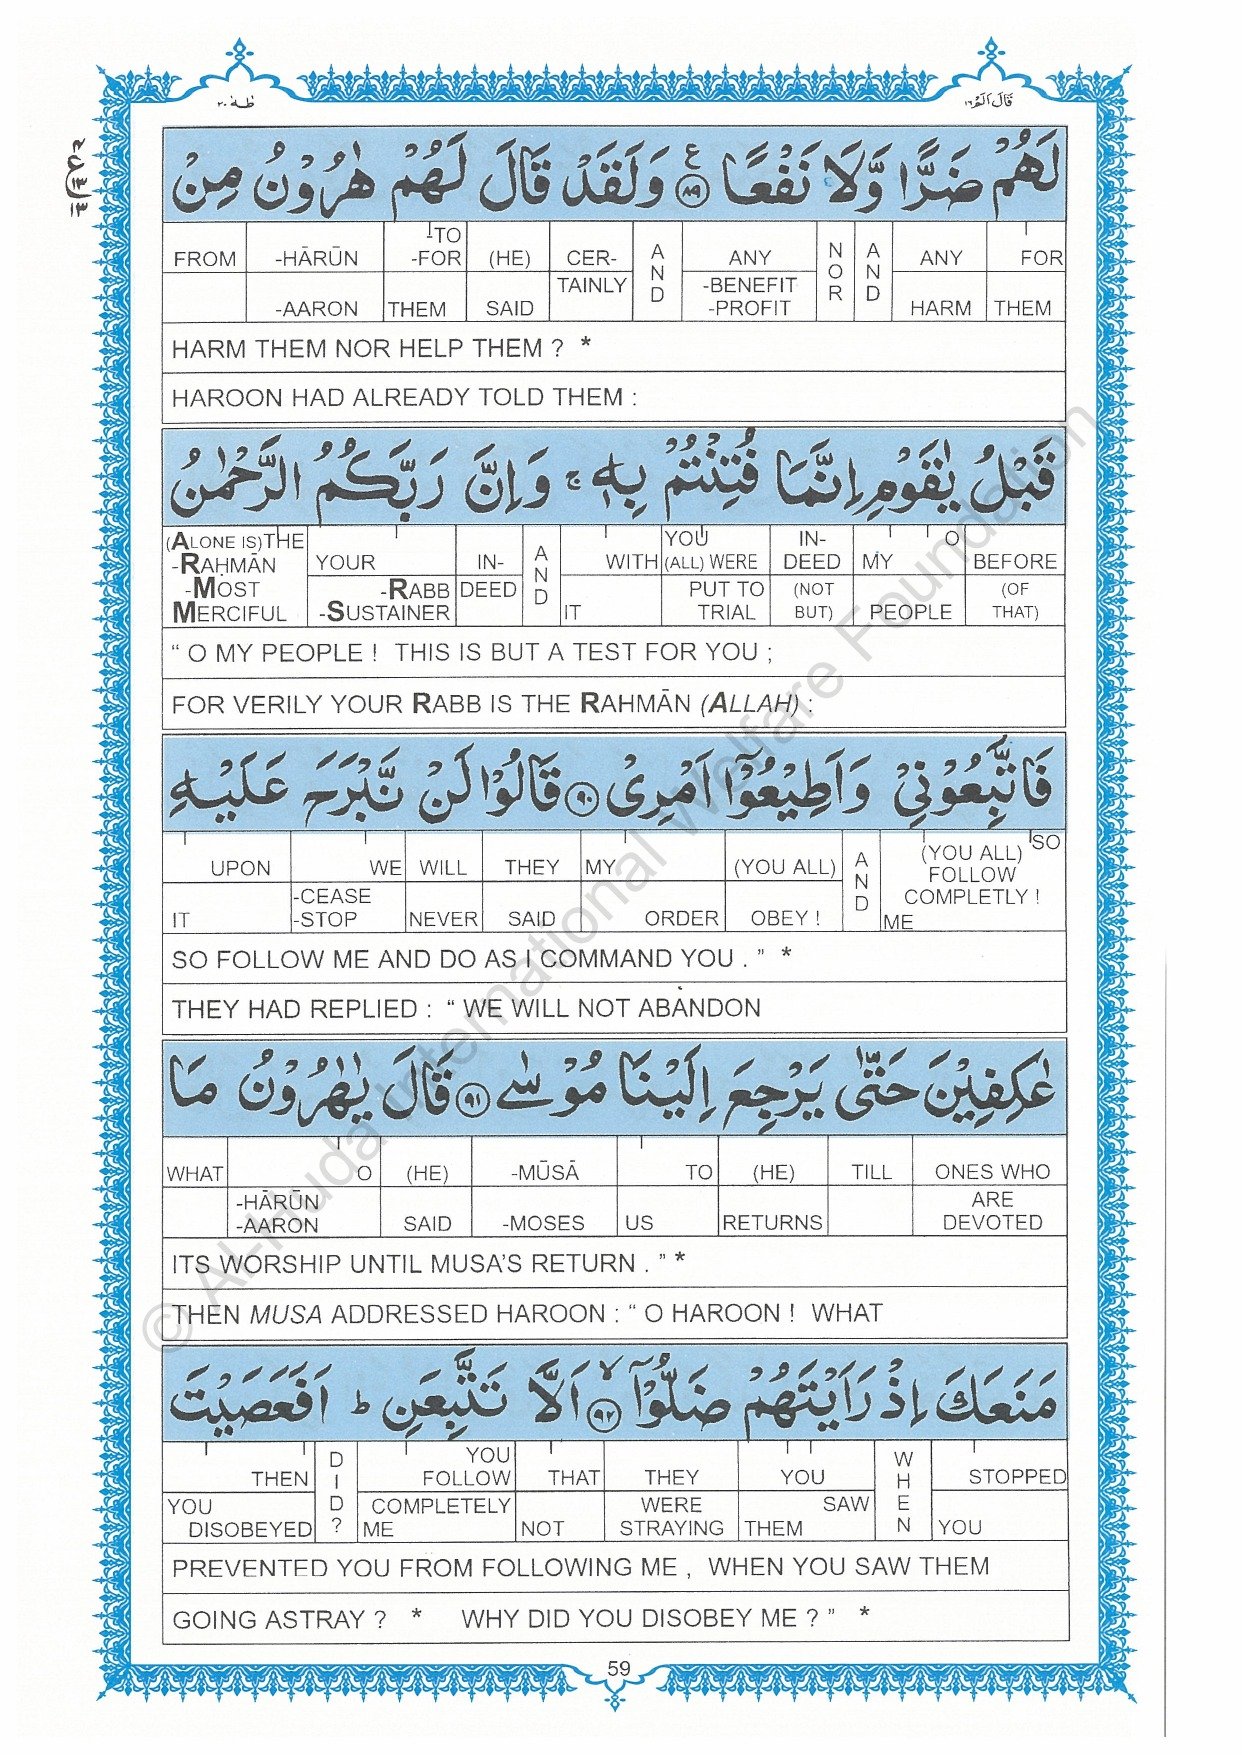 طٰهٰ ٢٠
قَالَ اَلَمْ ١٦
لَهُمْ ضَرًّا وَّلَا نَفْعًا ﴿٨٩﴾ ع وَلَقَدْ قَالَ لَهُمْ هٰرُوْنُ مِنْ
FROM -HĀRŪN -TO -FOR (HE) CER- AND ANY NOR AND ANY FOR
-AARON THEM SAID TAINLY -BENEFIT -PROFIT HARM THEM
HARM THEM NOR HELP THEM ? *
HAROON HAD ALREADY TOLD THEM :
قَبْلُ يٰقَوْمِ اِنَّمَا فُتِنْتُمْ بِهٖ ج وَاِنَّ رَبَّكُمُ الرَّحْمٰنُ
(ALONE IS)THE -RAHMĀN YOUR IN- AND WITH YOU (ALL) WERE IN- DEED MY O BEFORE
-MOST MERCIFUL -RABB -SUSTAINER DEED IT PUT TO TRIAL (NOT BUT) PEOPLE (OF THAT)
“ O MY PEOPLE ! THIS IS BUT A TEST FOR YOU ;
FOR VERILY YOUR RABB IS THE RAHMĀN (ALLAH) :
فَاتَّبِعُوْنِيْ وَاَطِيْعُوْٓا اَمْرِيْ ﴿٩٠﴾ قَالُوْا لَنْ نَّبْرَحَ عَلَيْهِ
UPON WE WILL THEY MY (YOU ALL) AND (YOU ALL) FOLLOW SO
IT -CEASE -STOP NEVER SAID ORDER OBEY ! COMPLETLY ! ME
SO FOLLOW ME AND DO AS I COMMAND YOU . ” *
THEY HAD REPLIED : “ WE WILL NOT ABANDON
عٰكِفِيْنَ حَتّٰى يَرْجِعَ اِلَيْنَا مُوْسٰى ﴿٩١﴾ قَالَ يٰهٰرُوْنُ مَا
WHAT O (HE) -MŪSĀ TO (HE) TILL ONES WHO
-HĀRŪN -AARON SAID -MOSES US RETURNS ARE DEVOTED
ITS WORSHIP UNTIL MUSA’S RETURN . ” *
THEN MUSA ADDRESSED HAROON : “ O HAROON ! WHAT
مَنَعَكَ اِذْ رَاَيْتَهُمْ ضَلُّوْٓا ﴿٩٢﴾ لا اَلَّا تَتَّبِعَنِ ط اَفَعَصَيْتَ
THEN DID? YOU FOLLOW THAT THEY YOU WHEN STOPPED
YOU DISOBEYED COMPLETELY ME NOT WERE STRAYING SAW THEM YOU
PREVENTED YOU FROM FOLLOWING ME , WHEN YOU SAW THEM
GOING ASTRAY ? * WHY DID YOU DISOBEY ME ? ” *
59
© Al-Huda International Welfare Foundation